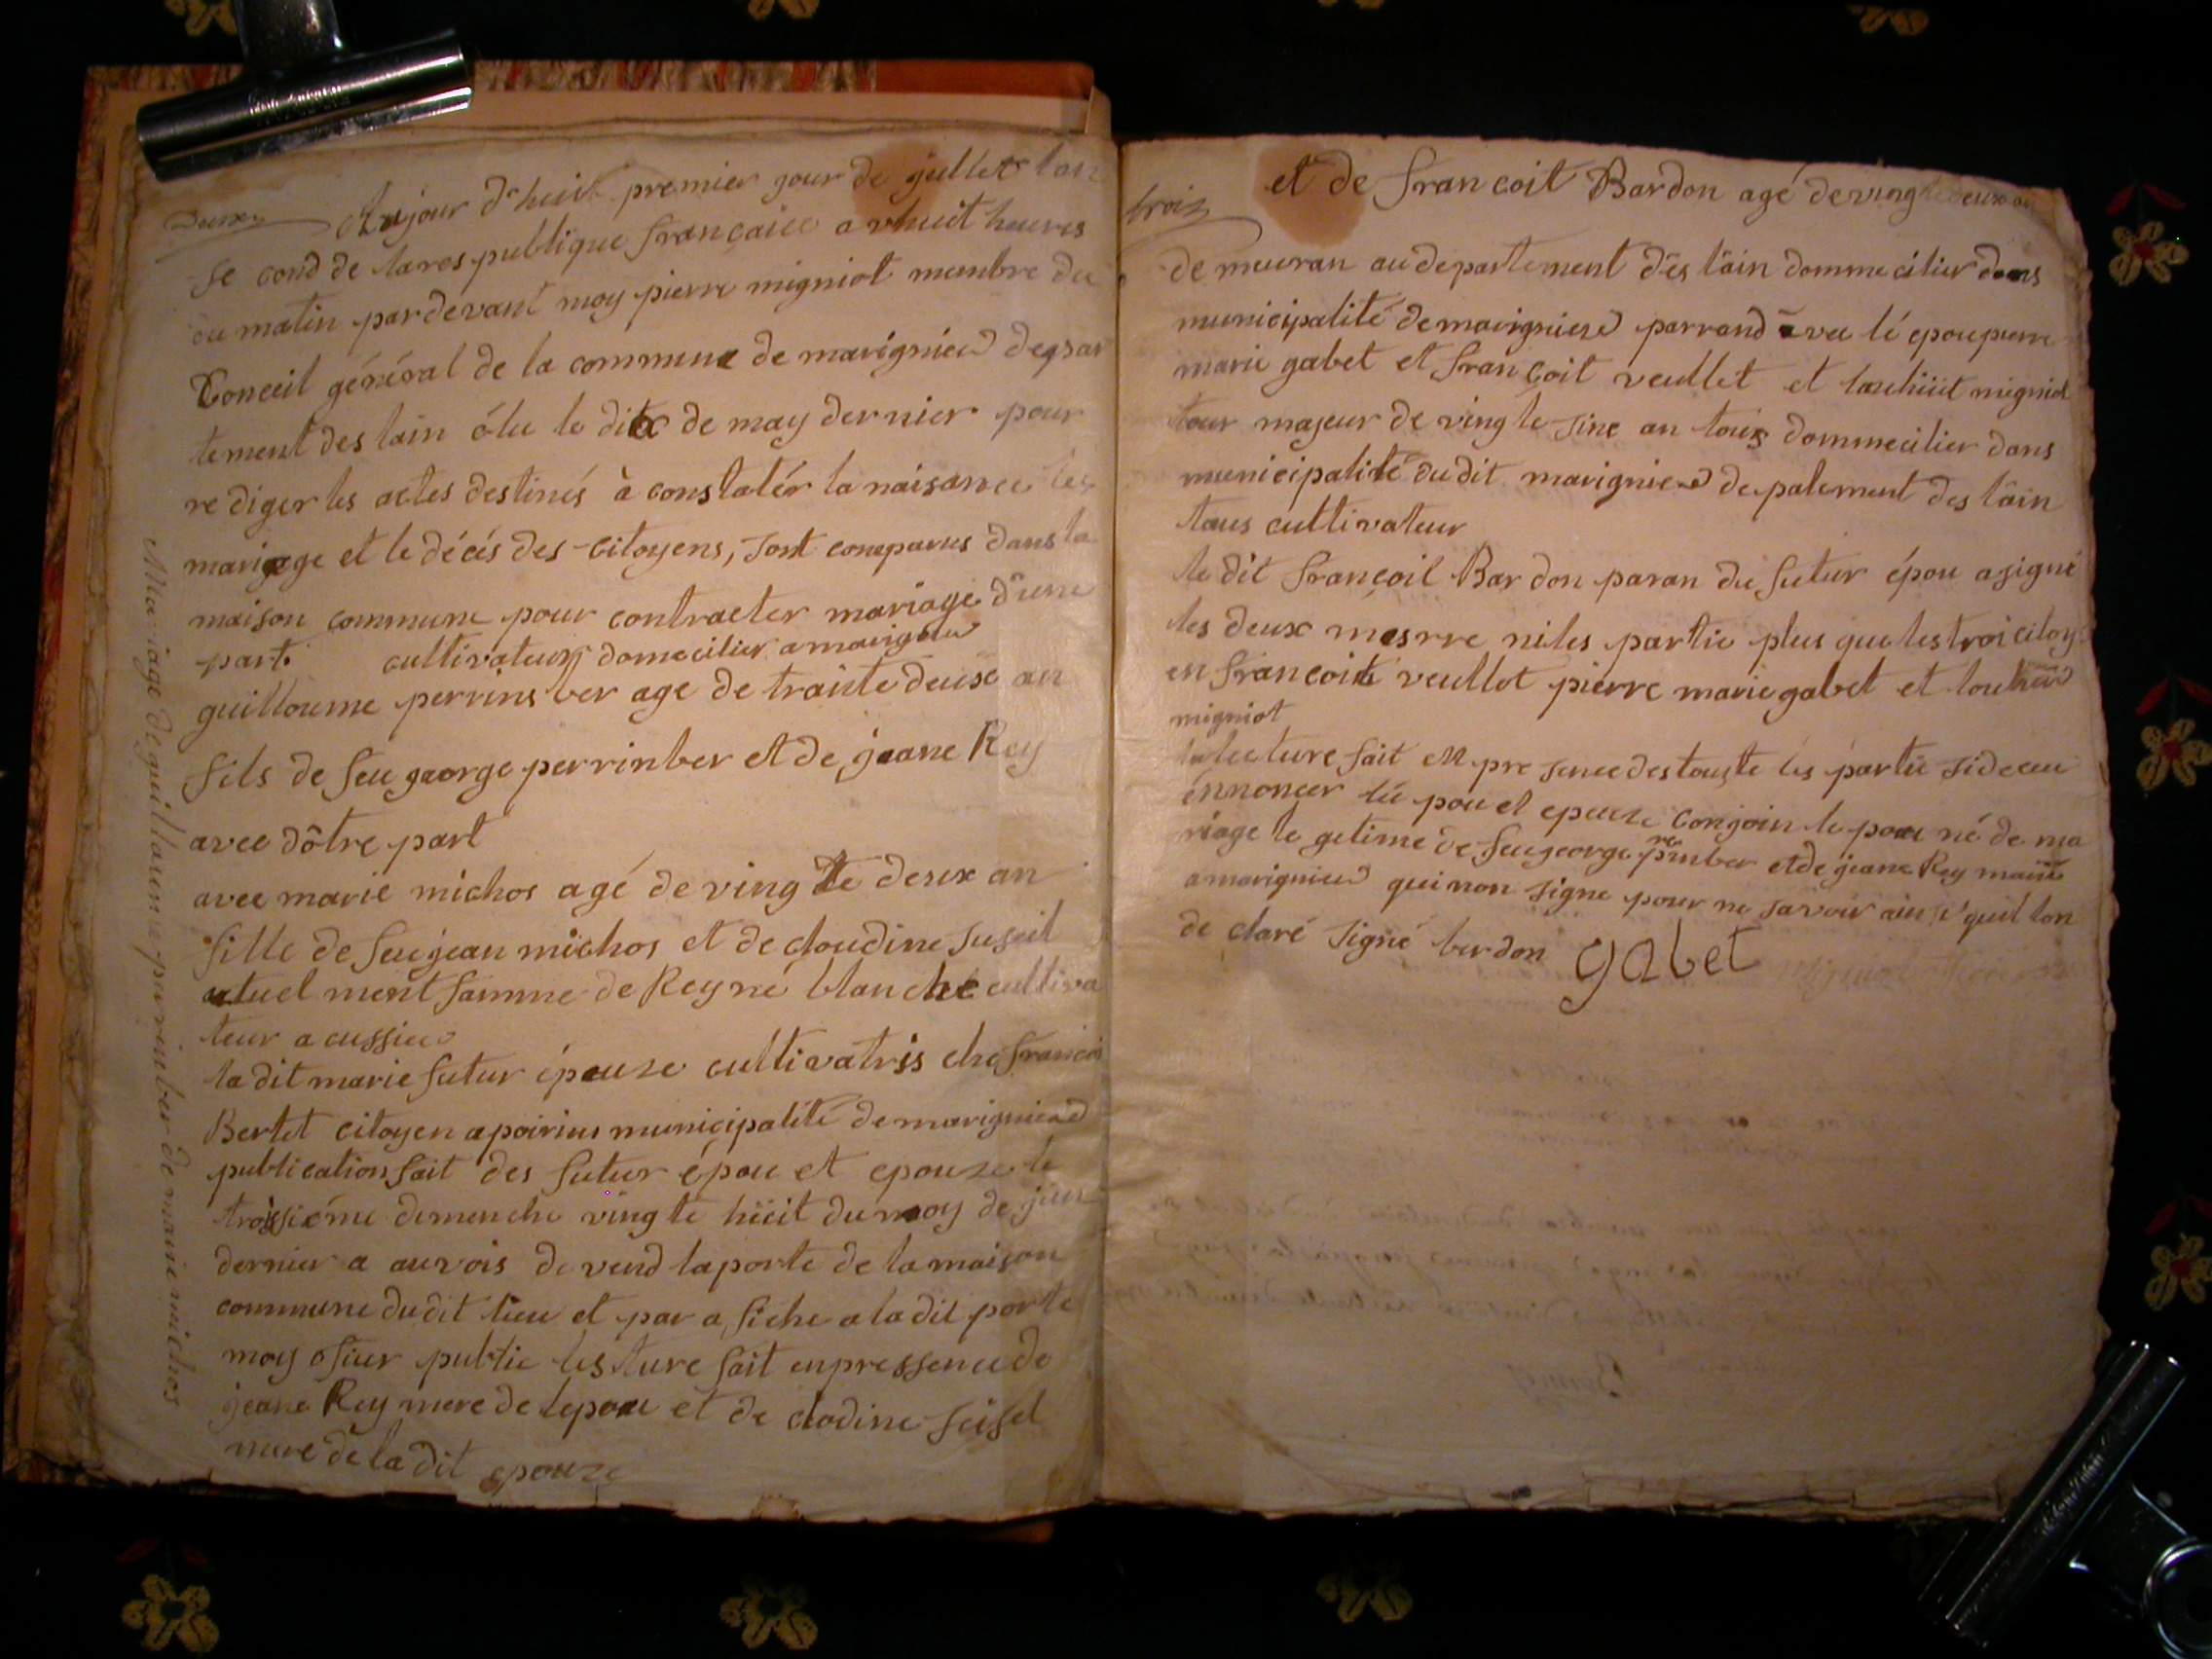 Deux
Aujour d'huit premier jour de jullet lan
se cond de lares publique francaice a vhuit heures
du matin pardevant moy pierre migniot membre du
Conceil général de la commune de marignieu depar
tement des lain élu le dix de may dernier pour
re diger les actes destinés à constatér la naisance les
mariage et le décés des citoyens, sont comparus dans la
maison commune pour contracter mariage d'une
part. cultivateur domecilier a marignieu
guilloume perrins ber age de trainte deux an
fils de feu george perrinber et de jeane Rey
avec dôtre part
avec marie michos agé de ving te deux an
fille de feu jean michos et de cloudine
actuel ment famme de Reyné blanche cultiva
teur a cussieu
la dit marie futur épouze cultivatris che francoi
Bertet citoyen apoirius municipalité de marignieu
publication fait des futur épou et epouze le
troissiéme dimenche ving te huit du moy de juin
dernier a auvois de vend laporte de la maison
commune dudit lieu et par a fiche a la dit porte
moy ofiier public lesture fait enpressence de
jeane Rey mere de lepou et de clodine seisel
mere de la dit epouze
Mariage de guillaume perrinber de marie michos
trois
et de francoit Bardon agé deving te deux an
de meuran au departement des lain domme cilier dans
municipalité demarignieu parrand avec lé epou pierre
marie gabet et francoit veullet et migniot
tour majeur de ving te sinc an tous dommecilier dans
municipalité dudit marignieu depatement des lain
tous cultivateur
le dit francoit Bardon paran du futur épou a signé
les deux mesrre niles partie plus que les troi citoy
en francoit veullet pierre marie gabet et
migniot
la lecture fait en pre sence des touste les partie sideceu
énnoncer lé pou et epouze conjoin le pou né de ma
riage le getime de feu george perrinber et de jeane Rey
a marignieu qui non signe pour ne savoir ainsi quil lon
de claré signé bardon gabet